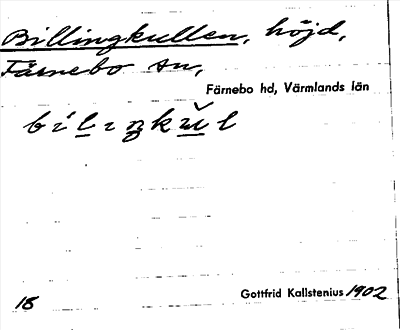 Billingkullen, höjd,
Färnebo sn,
Färnebo hd, Värmlands län
Gottfrid Kallstenius 1902
18